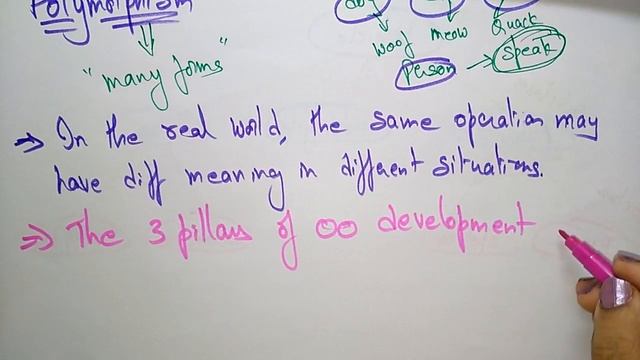 Polymorphism
"many forms"
Woof Meow Quack
Person → Speak
⇒ In the real world, the same operation may
have diff meaning in different situations.
⇒ The 3 pillars of OO development